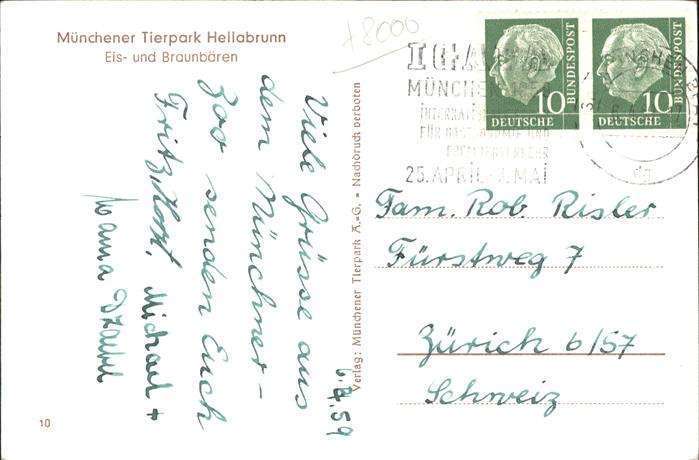 Münchener Tierpark Hellabrunn
Eis- und Braunbären
+8000
MÜNCHE
25. APRIL- MAI
10
DEUTSCHE
BUNDESPOST
10
DEUTSCHE
BUNDESPOST
Viele Grüsse aus
dem Münchner-
Zoo senden Euch
Fritz, Horst, Michael +
Verlag: Münchener Tierpark A.-G. - Nachdruck verboten
Fam. Rob. Risler
Fürstweg 7
Zürich 6/57
Schweiz
10